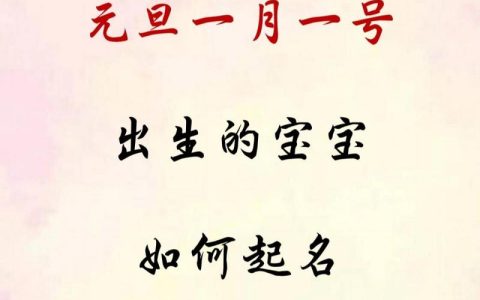 元旦一月一号
出生的宝宝
如何起名